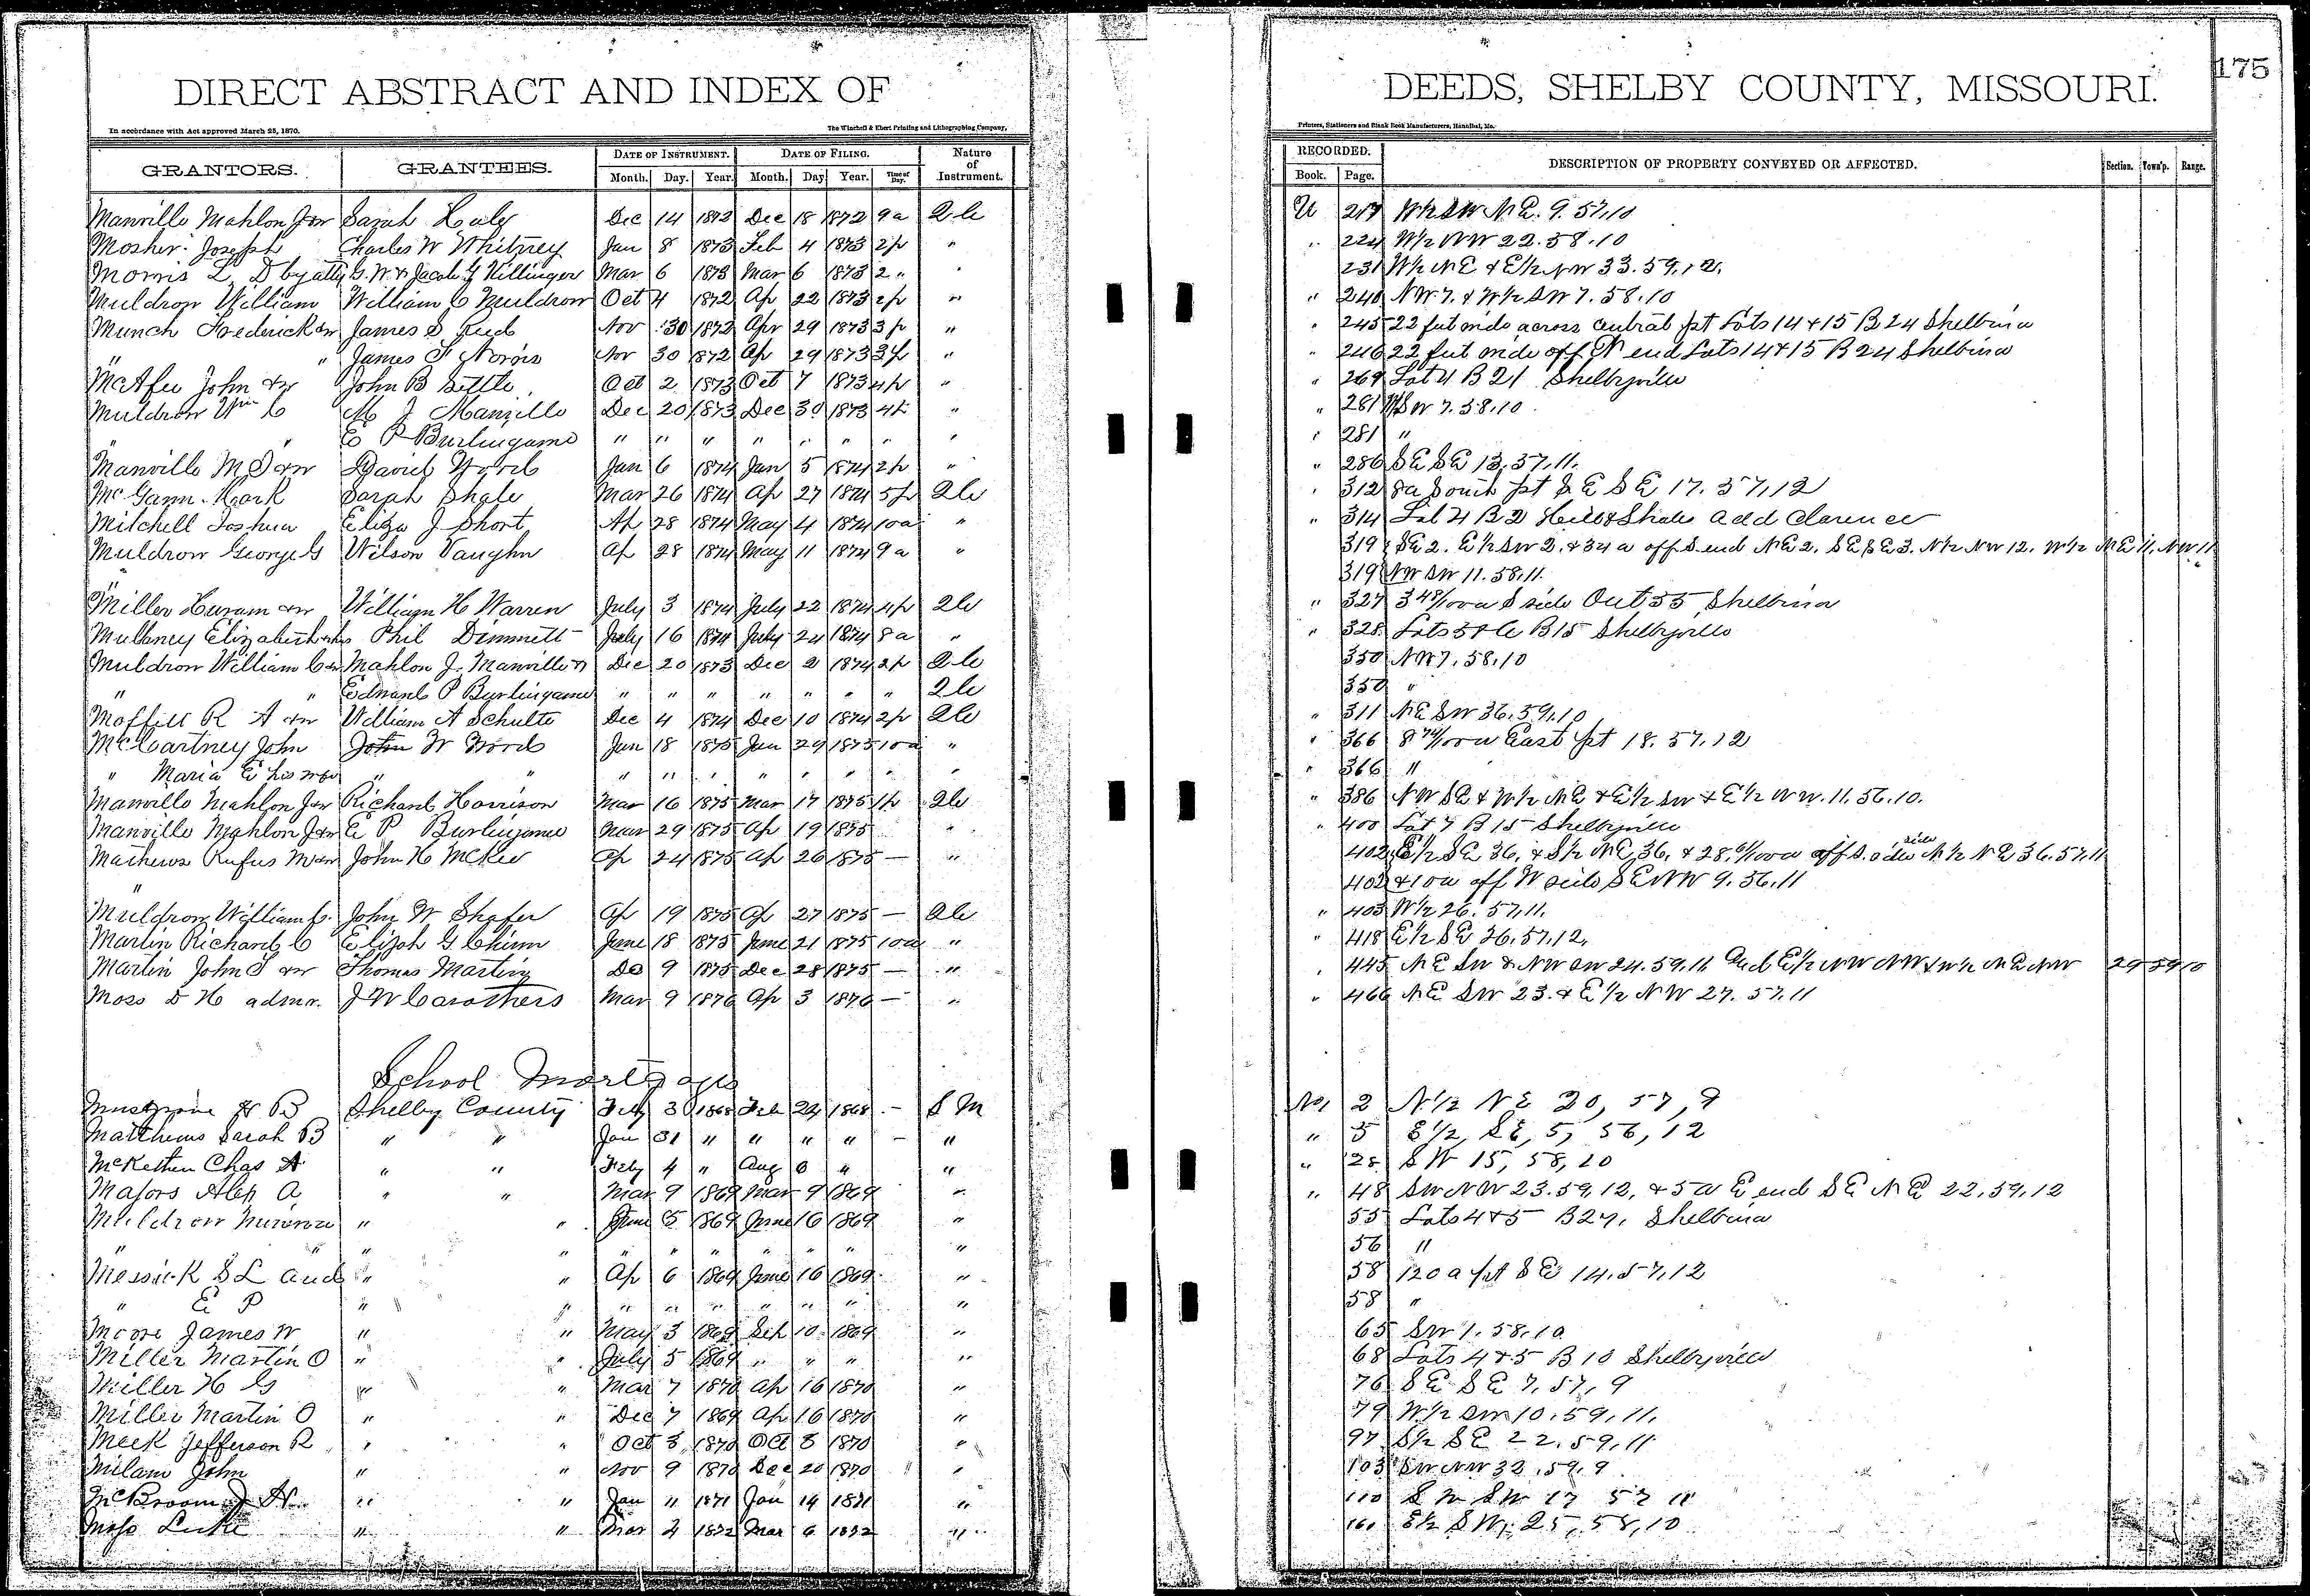 DIRECT ABSTRACT AND INDEX OF
In accordance with Act approved March 25, 1870.
The Winchell & Ebert Printing and Lithographing Company,
GRANTORS. GRANTEES. DATE OF INSTRUMENT. DATE OF FILING. Nature of Instrument.
Month. Day. Year. Month. Day Year. Time of Day.
Manville Mahlon J &w Sarah Dec 14 1872 Dec 18 1872 9a
Mosher Joseph Charles W Whitney Jan 8 1873 Feb 4 1873 2p "
Morris L D by atty G. W. & Jacob Y Killinger Mar 6 1873 Mar 6 1873 2 " "
Muldrow William William C Muldrow Oct 4 1872 Ap 22 1873 2p "
Munch Frederick &w James S Reed Nov 30 1872 Apr 29 1873 3p "
" " James F Norris Nov 30 1872 Ap 29 1873 3p "
McAfee John &w John B Settle Oct 2 1873 Oct 7 1873 4p "
Muldrow Wm C M J Manville Dec 20 1873 Dec 30 1873 4p "
" " E P Burlingame " " " " " " " "
Manville M J &w David Wood Jan 6 1874 Jan 5 1874 2p "
McGann Mark Sarah Shale Mar 26 1874 Ap 27 1874 5p
Mitchell Joshua Eliza J Short Ap 28 1874 May 4 1874 10a "
Muldrow George G Wilson Vaughn Ap 28 1874 May 11 1874 9a "
"
Miller Huram &w William H Warren July 3 1874 July 22 1874 4p
Mullaney Elizabeth Phil Dimmitt July 16 1874 July 24 1874 8a "
Muldrow William C &w Mahlon J. Manville Dec 20 1873 Dec 2 1874 2p
" " Edward P Burlingame " " " " " " "
Moffett R A &w William A Schulte Dec 4 1874 Dec 10 1874 2p
McCartney John John W Wood Jan 18 1875 Jan 29 1875 10a "
" Maria E his wife " " " " " " " " " "
Manville Mahlon J &w Richard Harrison Mar 16 1875 Mar 17 1875 1p
Manville Mahlon J &w E P Burlingame Mar 29 1875 Ap 19 1875 "
Mathews Rufus M &w John H McKee Ap 24 1875 Ap 26 1875 — "
"
Muldrow William C. John W Shafer Ap 19 1875 Ap 27 1875 —
Martin Richard C Elijah G Chinn June 18 1875 June 21 1875 10a "
Martin John S &w Thomas Martin Dec 9 1875 Dec 28 1875 — "
Moss D H admr. J W Carothers Mar 9 1876 Ap 3 1876 — "
School Mortgages
Musgrove B Shelby County Feby 3 1868 Feb 24 1868 — S M
Matthews Sarah B " " Jan 31 " " " " — "
McKethen Chas A " " Feby 4 " Aug 6 " "
Majors Alex A " " Mar 9 1869 Mar 9 1869 "
Muldrow " " June 5 1869 June 16 1869 "
" " " " " " " " " " "
Messick S L and " " Ap 6 1869 June 16 1869 "
" E P " " " " " " " " "
Moore James W " " May 3 1869 Sep 10 1869 "
Miller Martin O " " July 5 1869 " " " "
Miller H G " " Mar 7 1870 Ap 16 1870 "
Miller Martin O " " Dec 7 1869 Ap 16 1870 "
Meek Jefferson R " " Oct 3 1870 Oct 3 1870 "
Milam John " " Nov 9 1870 Dec 20 1870 "
McBroom J H " " Jan 11 1871 Jan 14 1871 "
Moss Luke " " Mar 4 1872 Mar 6 1872 "
175
DEEDS, SHELBY COUNTY, MISSOURI.
Printers, Stationers and Blank Book Manufacturers, Hannibal, Mo.
RECORDED. DESCRIPTION OF PROPERTY CONVEYED OR AFFECTED. Section. Town'p. Range.
Book. Page.
U 217 W½ SW NE. 9. 57.10
" 224 W½ NW 22.58.10
231 W½ NE & E½ NW 33.59.12.
" 240 NW. 7. & W½ SW 7. 58.10
" 245 22 feet wide across central pt Lots 14 & 15 B 24 Shelbina
" 246 22 feet wide off N end Lots 14 & 15 B 24 Shelbina
" 269 Lot 4 B 21 Shelbyville
" 281 SW 7.58.10
" 281 "
" 286 SE SE 13.57.11.
" 312 8a South pt SE SE 17.57.12
" 314 Lot 4 B 2 Shales Add Clarence
319 SE 2. E½ SW 2. & 34 a off S. end NE 2. SE SE 3. N½ NW 12. W½ NE 11. NW 11
319 NW SW 11.58.11.
" 327 3 48/100 a S side Out 55 Shelbina
" 328 Lots 5 & 6 B 15 Shelbyville
350 NW 7.58.10
350 "
" 311 NE SW 36.59.10
" 366 8 74/100 a East pt 18.57.12
" 366 "
" 386 NW SE & W½ NE & E½ SW & E½ NW. 11.56.10.
" 400 Lot 7 B 15 Shelbyville
402 E½ SE 36. & S½ NE 36. & 28. a off S. side N½ NE 36.57.11
402 & 10a off W side SE NW 9.56.11
" 403 W½ 26.57.11.
" 418 E½ SE 36.57.12.
" 445 NE SW & NW SW 24.59.11 and E½ NW NW & W½ NE NW 29 59 10
" 466 NE SW 23. & E½ NW 27.57.11
No 1 2 N½ NE 20, 57, 9
" 5 E½, SE, 5, 56, 12
" 28 SW 15, 58, 10
" 48 SW NW 23.59.12. & 5a E end SE NE 22.59.12
55 Lots 4 & 5 B 27, Shelbina
56 "
58 120 a pt SE 14.57.12
58 "
65 SW 1.58.10
68 Lots 4 & 5 B 10 Shelbyville
76 SE SE 7.57.9
79 W½ SW 10.59.11.
97 S½ SE 22.59.11
103 SW NW 33.59.9
110 SW SW 17 57 11
160 E½ SW, 25, 58, 10